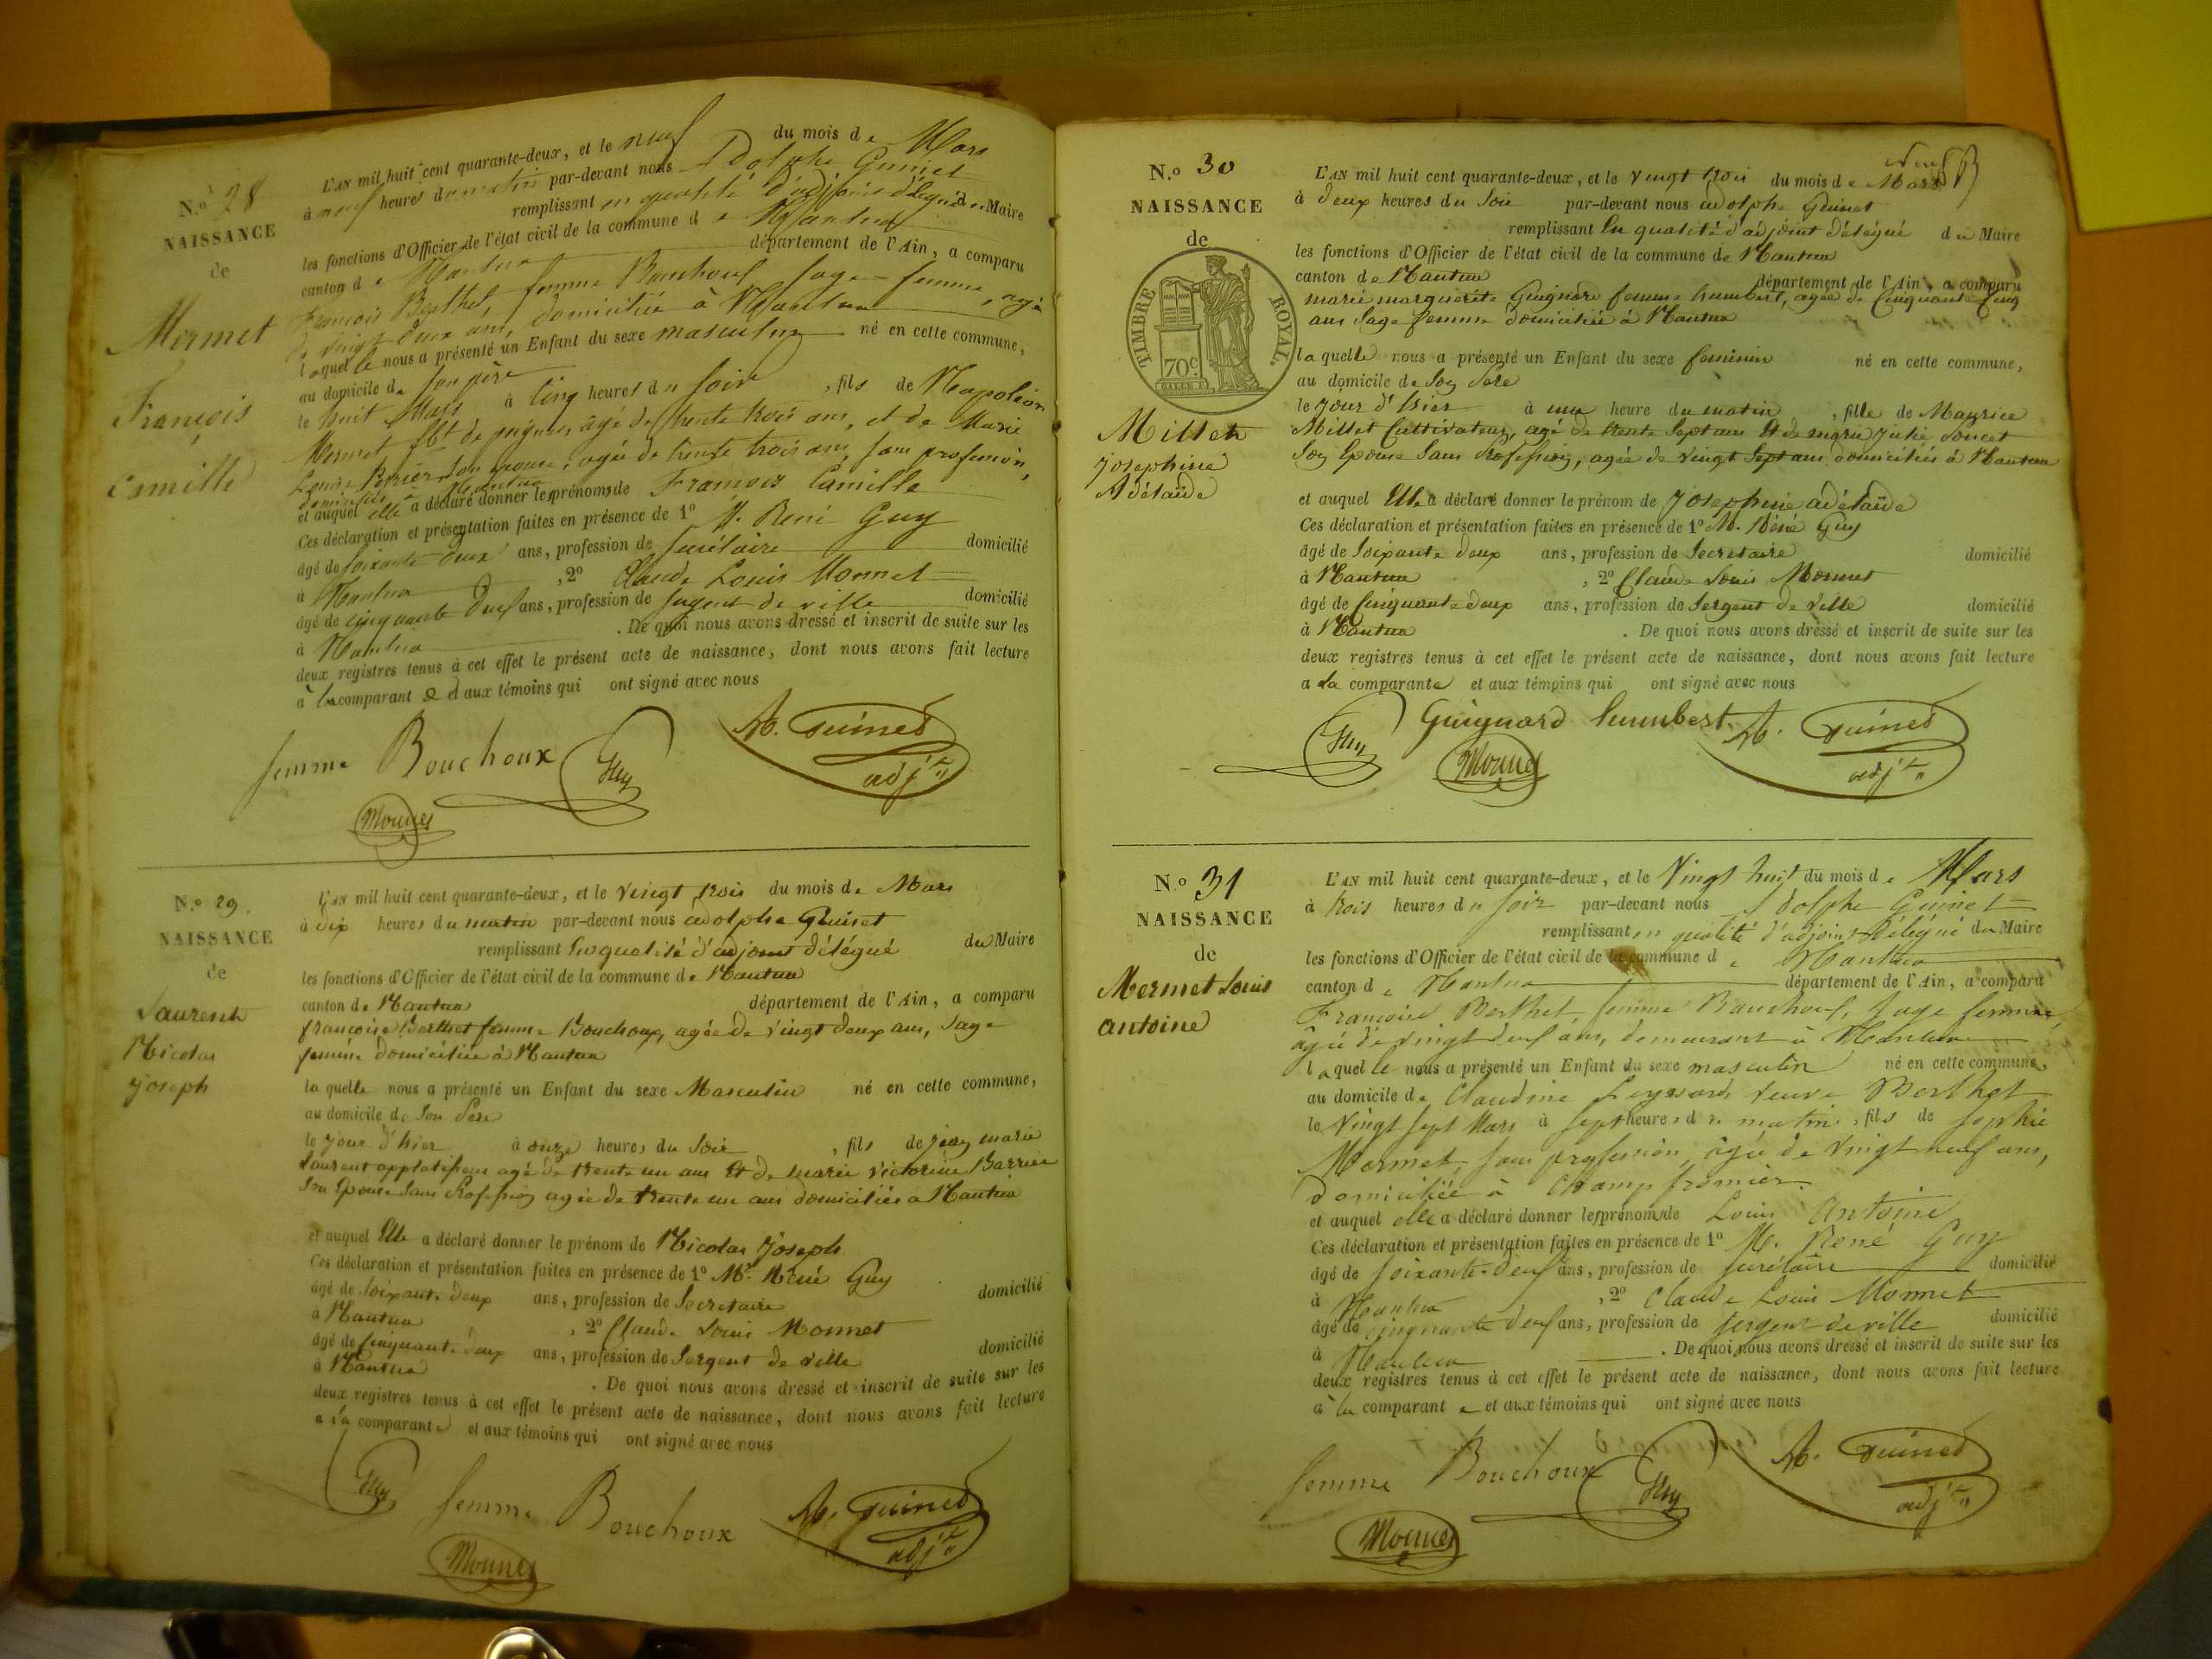 N.o 28
NAISSANCE
de
Mermet
François
Camille
L'AN mil huit cent quarante-deux, et le neuf du mois de Mars
à neuf heures du matin par-devant nous Adolphe Guinet
remplissant en qualité d'adjoint délégué du Maire
les fonctions d'Officier de l'état civil de la commune de Nantua
canton de Nantua département de l'Ain, a comparu
Françoise Berthet, femme Bouchoux sage-femme, agée
de vingt deux ans, domiciliée à Nantua
laquelle nous a présenté un Enfant du sexe masculin né en cette commune,
au domicile de son père
le huit Mars à cinq heures du soir, fils de Napoléon
Mermet fbt de peignes, âgé de trente trois ans, et de Marie
Louise son épouse, agée de trente trois ans, sans profession,
domiciliés à Nantua
et auquel elle a déclaré donner les prénoms de François Camille
Ces déclaration et présentation faites en présence de 1o M. René Guy
âgé de soixante deux ans, profession de secrétaire domicilié
à Nantua, 2o Claude Louis Monnet
âgé de cinquante deux ans, profession de sergent de ville domicilié
à Nantua. De quoi nous avons dressé et inscrit de suite sur les
deux registres tenus à cet effet le présent acte de naissance, dont nous avons fait lecture
à la comparante et aux témoins qui ont signé avec nous
femme Bouchoux Guy A. Guinet
adjt
Monnet
N.o 29.
NAISSANCE
de
Laurent
Nicolas
joseph
L'AN mil huit cent quarante-deux, et le vingt trois du mois de Mars
à dix heures du matin par-devant nous adolphe Guinet
remplissant En qualité d'adjoint délégué du Maire
les fonctions d'Officier de l'état civil de la commune de Nantua
canton de Nantua département de l'Ain, a comparu
françoise Berthet femme Bouchoux, agée de vingt deux ans, sage
femme domiciliée à Nantua
laquelle nous a présenté un Enfant du sexe Masculin né en cette commune,
au domicile de son Père
le jour d'hier à onze heures du Soir, fils de jean marie
Laurent agé de trente un ans Et de marie victorine Barrier
son Epouse sans Profession agée de trente un ans domiciliés à Nantua
et auquel Elle a déclaré donner le prénom de Nicolas joseph
Ces déclaration et présentation faites en présence de 1o Mr. René Guy
âgé de Soixante deux ans, profession de Secretaire domicilié
à Nantua, 2o Claude Louis Monnet
âgé de Cinquante deux ans, profession de Sergent de ville domicilié
à Nantua. De quoi nous avons dressé et inscrit de suite sur les
deux registres tenus à cet effet le présent acte de naissance, dont nous avons fait lecture
a la comparante et aux témoins qui ont signé avec nous
Guy femme Bouchoux A. Guinet
adjt
Monnet
N.o 30
NAISSANCE
de
TIMBRE ROYAL.
70c.
Millet
josephine
Adélaïde
Neuf
L'AN mil huit cent quarante-deux, et le vingt trois du mois de Mars
à deux heures du Soir par-devant nous adolphe Guinet
remplissant En qualité d'adjoint délégué du Maire
les fonctions d'Officier de l'état civil de la commune de Nantua
canton de Nantua département de l'Ain, a comparu
marie marguerite Guignard femme humbert, agée de Cinquante Cinq
ans Sage femme domiciliée à Nantua
laquelle nous a présenté un Enfant du sexe feminin né en cette commune,
au domicile de Son Père
le jour d'hier à une heure du matin, fille de Maurice
Millet Cultivateur, agé de trente Sept ans Et de marie julie
Son Epouse Sans Profession, agée de vingt Sept ans domiciliés à Nantua
et auquel Elle a déclaré donner le prénom de josephine adélaïde
Ces déclaration et présentation faites en présence de 1o M. Réné Guy
âgé de Soixante deux ans, profession de Secretaire domicilié
à Nantua, 2o Claude Louis Monnet
âgé de Cinquante deux ans, profession de Sergent de ville domicilié
à Nantua. De quoi nous avons dressé et inscrit de suite sur les
deux registres tenus à cet effet le présent acte de naissance, dont nous avons fait lecture
a la comparante et aux témoins qui ont signé avec nous
Guy Guignard humbert A. Guinet
Monnet adjt
N.o 31
NAISSANCE
de
Mermet Louis
antoine
L'AN mil huit cent quarante-deux, et le Vingt huit du mois de Mars
à trois heures du soir par-devant nous Adolphe Guinet
remplissant en qualité d'adjoint délégué du Maire
les fonctions d'Officier de l'état civil de la commune de Nantua
canton de Nantua département de l'Ain, a comparu
Françoise Berthet femme Bouchoux, sage femme,
âgée de vingt deux ans, demeurant à Nantua
laquelle nous a présenté un Enfant du sexe masculin né en cette commune,
au domicile de Claudine veuve Berthet
le Vingt sept Mars à sept heures du matin, fils de Sophie
Mermet, sans profession, âgée de vingt neuf ans,
domiciliée à Champfromier.
et auquel elle a déclaré donner les prénoms de Louis Antoine
Ces déclaration et présentation faites en présence de 1o M. René Guy
âgé de soixante-deux ans, profession de secrétaire domicilié
à Nantua, 2o Claude Louis Monnet
âgé de cinquante deux ans, profession de sergent de ville domicilié
à Nantua. De quoi nous avons dressé et inscrit de suite sur les
deux registres tenus à cet effet le présent acte de naissance, dont nous avons fait lecture
à la comparante et aux témoins qui ont signé avec nous
femme Bouchoux Guy A. Guinet
adjt
Monnet